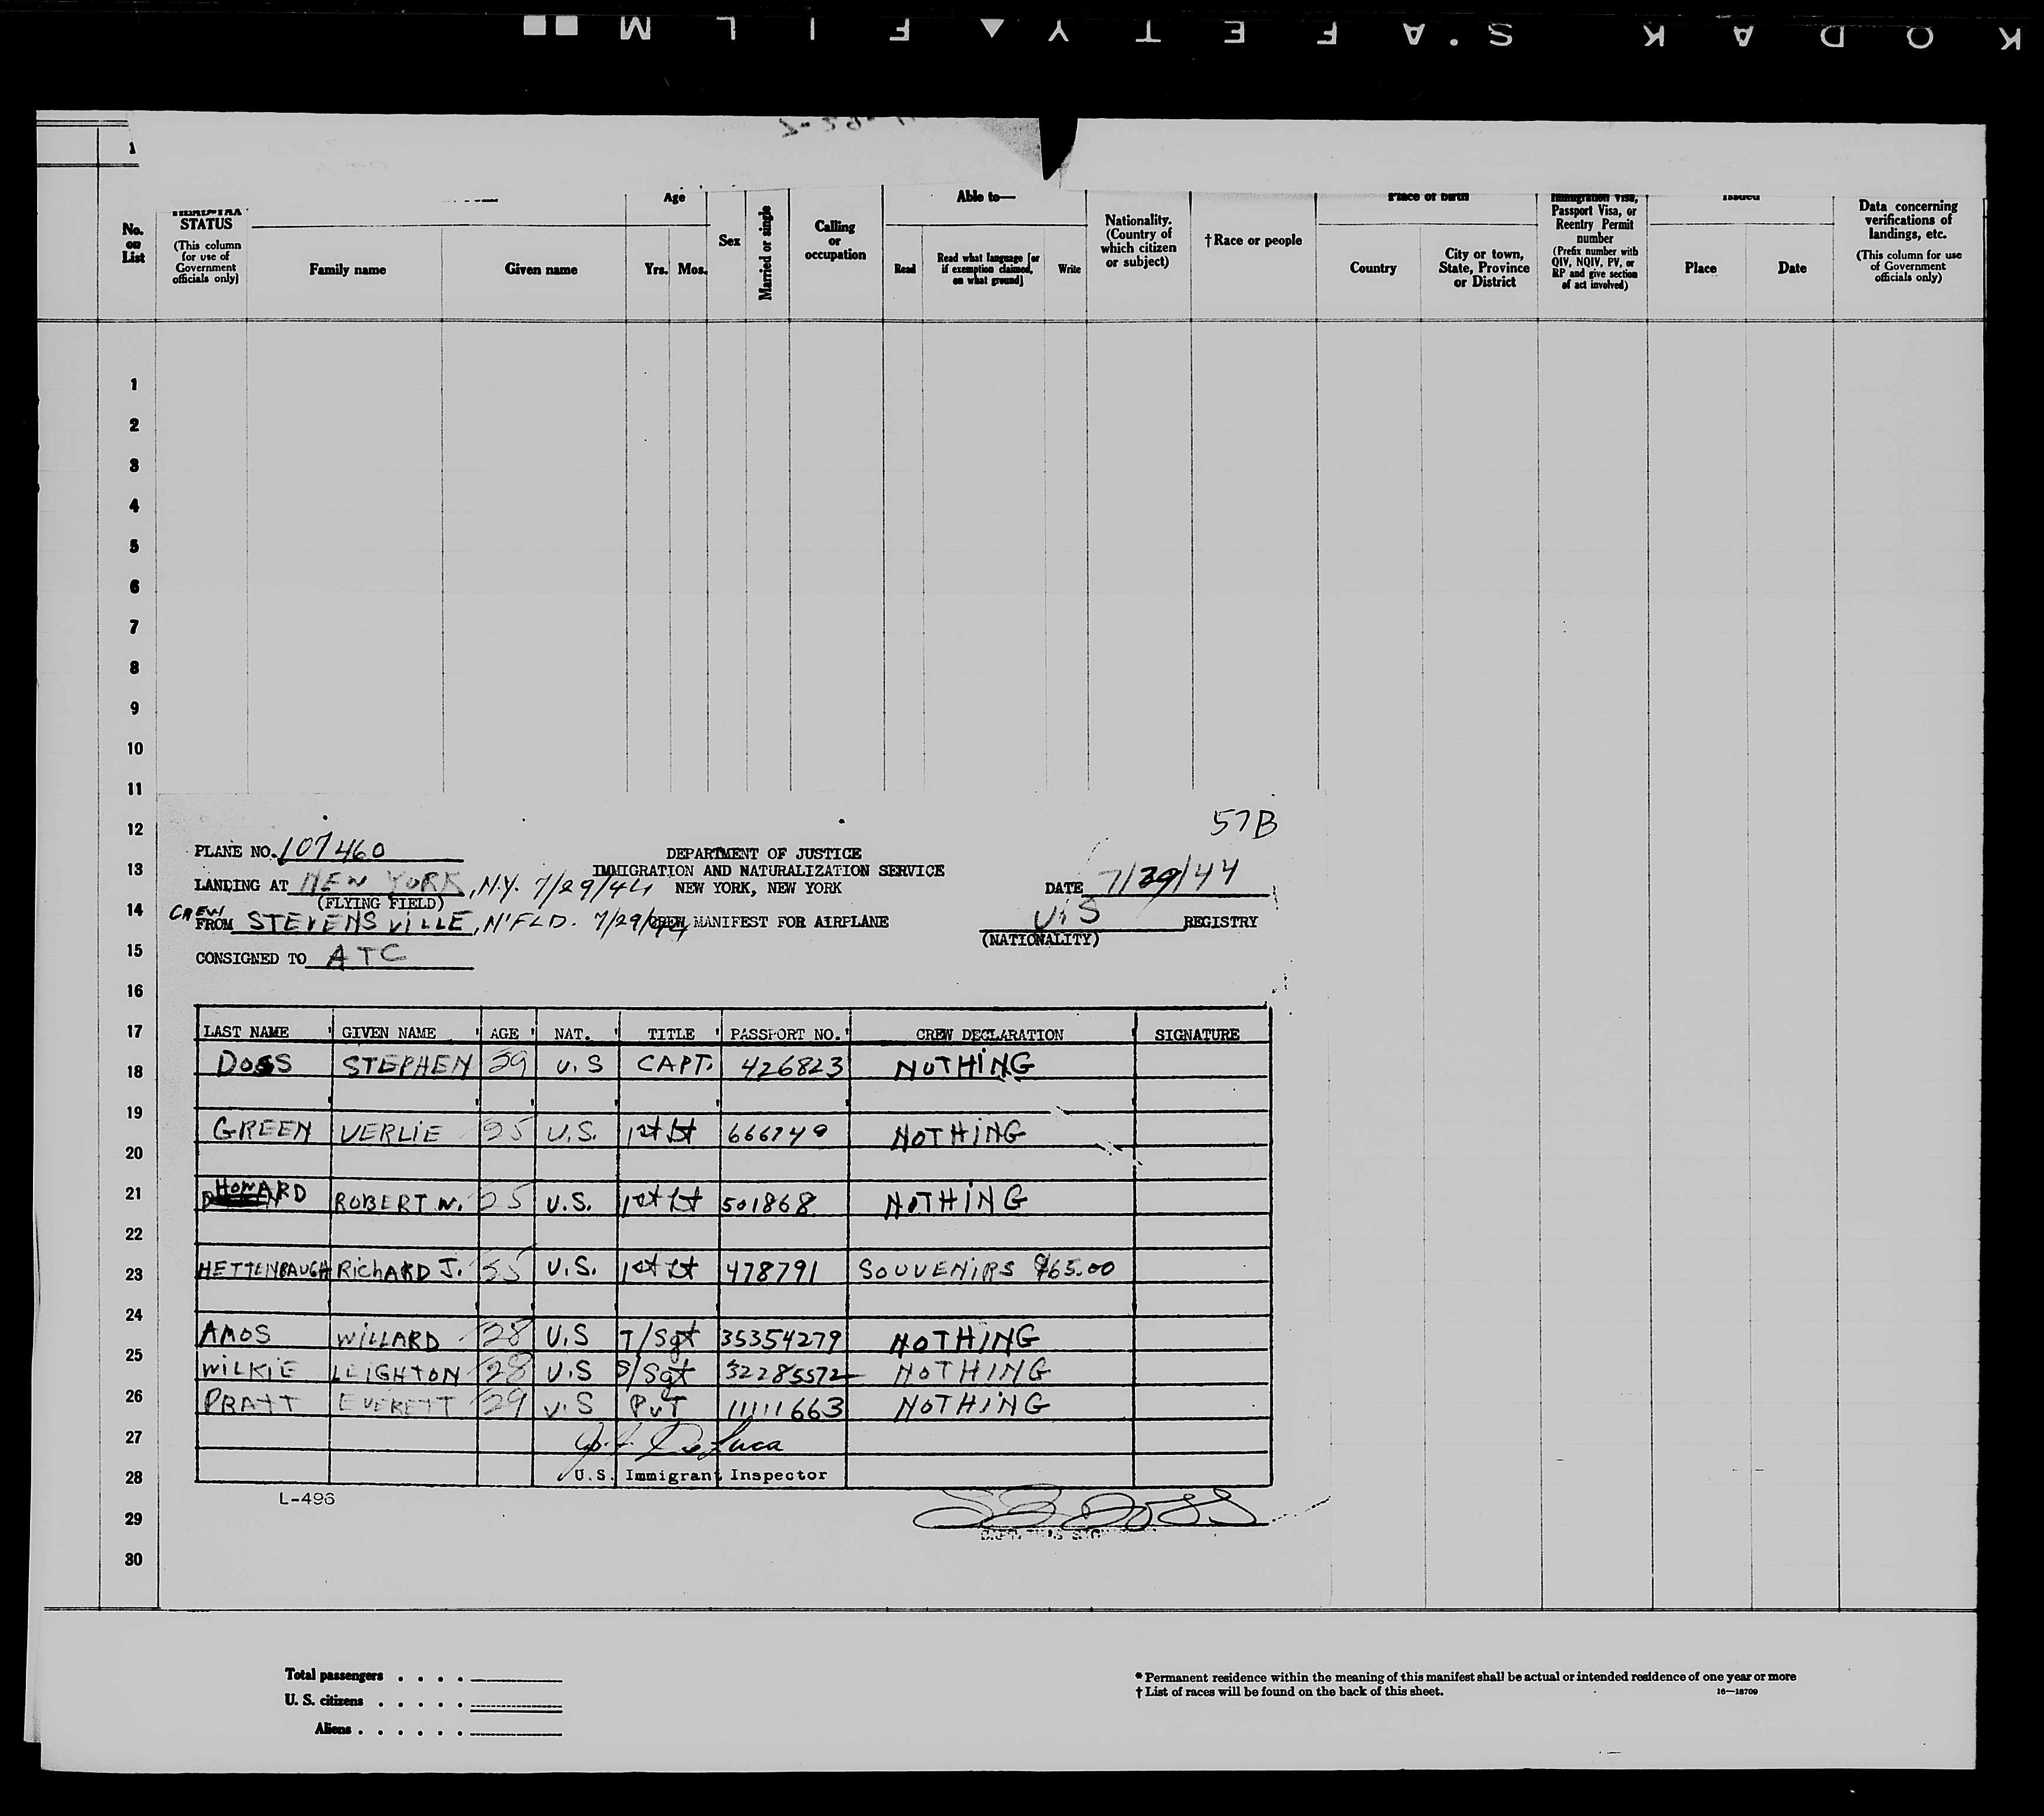 KODAK S.AFETY FILM
1
No. on List
STATUS
(This column for use of Government officials only)
Family name
Given name
Age
Yrs. Mos.
Sex
Married or single
Calling or occupation
Able to—
Read
Read what language [or if exemption claimed, on what ground]
Write
Nationality. (Country of which citizen or subject)
† Race or people
Place of birth
Country
City or town, State, Province or District
Immigration Visa, Passport Visa, or Reentry Permit number
(Prefix number with QIV, NQIV, PV, or RP and give section of act involved)
Issued
Place
Date
Data concerning verifications of landings, etc.
(This column for use of Government officials only)
1
2
3
4
5
6
7
8
9
10
11
12
13
14
15
16
17
18
19
20
21
22
23
24
25
26
27
28
29
30
57B
PLANE NO. 107460
DEPARTMENT OF JUSTICE
IMMIGRATION AND NATURALIZATION SERVICE
LANDING AT NEW YORK, N.Y. 7/29/44 NEW YORK, NEW YORK DATE 7/29/44
(FLYING FIELD)
CREW
FROM STEVENSVILLE, N'FLD. 7/29/44 CREW MANIFEST FOR AIRPLANE U.S REGISTRY
(NATIONALITY)
CONSIGNED TO ATC
LAST NAME GIVEN NAME AGE NAT. TITLE PASSPORT NO. CREW DECLARATION SIGNATURE
DOSS STEPHEN 39 U.S CAPT. 426823 NOTHING
GREEN VERLIE 25 U.S. 1st Lt 666749 NOTHING
HOWARD ROBERT W. 25 U.S. 1st Lt 501868 NOTHING
HETTENBAUGH RICHARD J. 35 U.S. 1st Lt 478791 SOUVENIRS $65.00
AMOS WILLARD 28 U.S T/Sgt 35354279 NOTHING
WILKIE LEIGHTON 28 U.S S/Sgt 32285572 NOTHING
PRATT EVERETT 29 U.S PVT 11111663 NOTHING
De Luca
U.S. Immigrant Inspector
L-496
SB Doss
Total passengers . . . .
U. S. citizens . . . . .
Aliens . . . . . .
* Permanent residence within the meaning of this manifest shall be actual or intended residence of one year or more
† List of races will be found on the back of this sheet.
16—18709